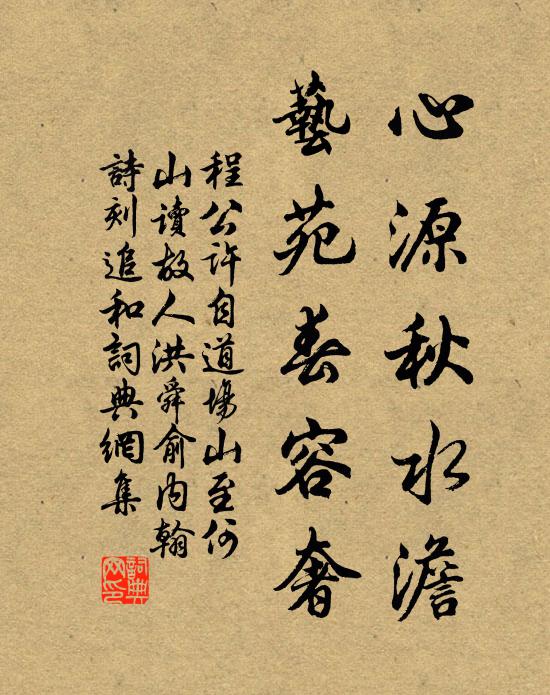 心源秋水澹
藝苑春容奢
程公許自道場山至何
山讀故人洪舜俞内翰
詩刻追和詞典網集
詞典網印